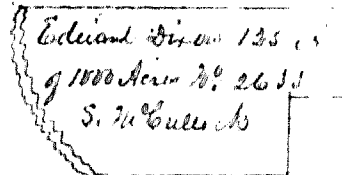 Edward Dixon 125
of 1000 Acres No. 26
S. McCulloch